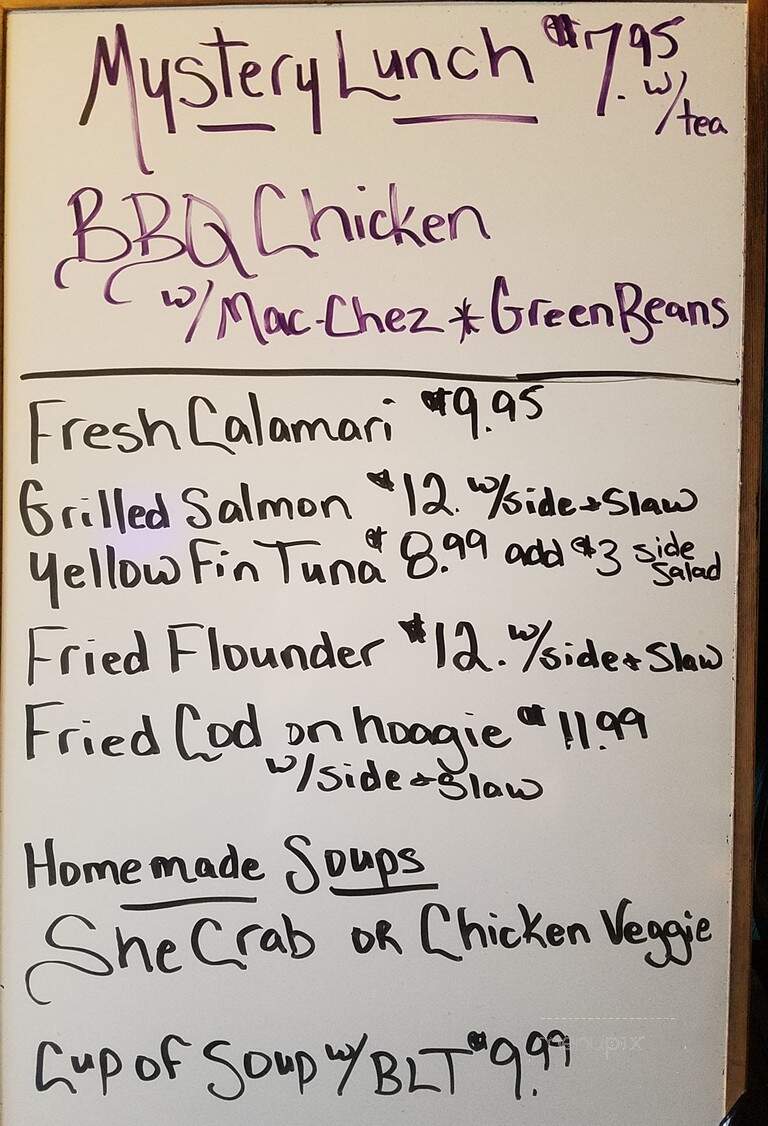 Mystery Lunch $7.95
w/tea
BBQ Chicken
w/Mac-Chez * Green Beans
Fresh Calamari $9.95
Grilled Salmon $12. w/side + Slaw
Yellow Fin Tuna $8.99 add $3 side
Salad
Fried Flounder $12. w/side + Slaw
Fried Cod on hoagie $11.99
w/side + Slaw
Homemade Soups
She Crab OR Chicken Veggie
Cup of Soup w/BLT $9.99
menupix